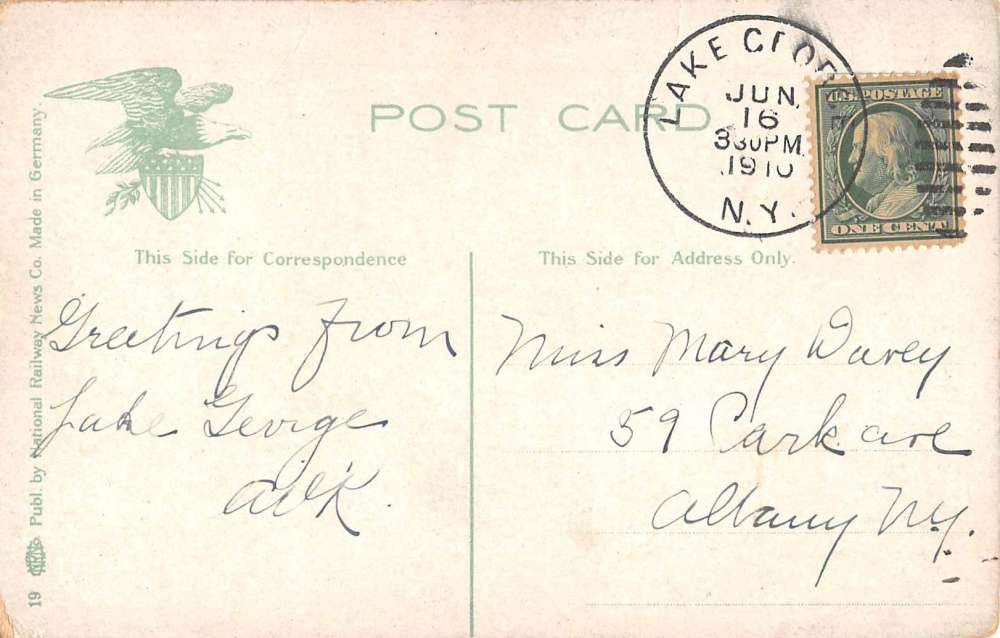 POST CARD
LAKE GEOR
JUN.
16
330PM
1910
N.Y.
U.S. POSTAGE
ONE CENT
This Side for Correspondence
This Side for Address Only.
Greetings from
Lake George
Miss Mary Davey
59 Park ave
Albany N.Y.
19
Publ. by National Railway News Co. Made in Germany.